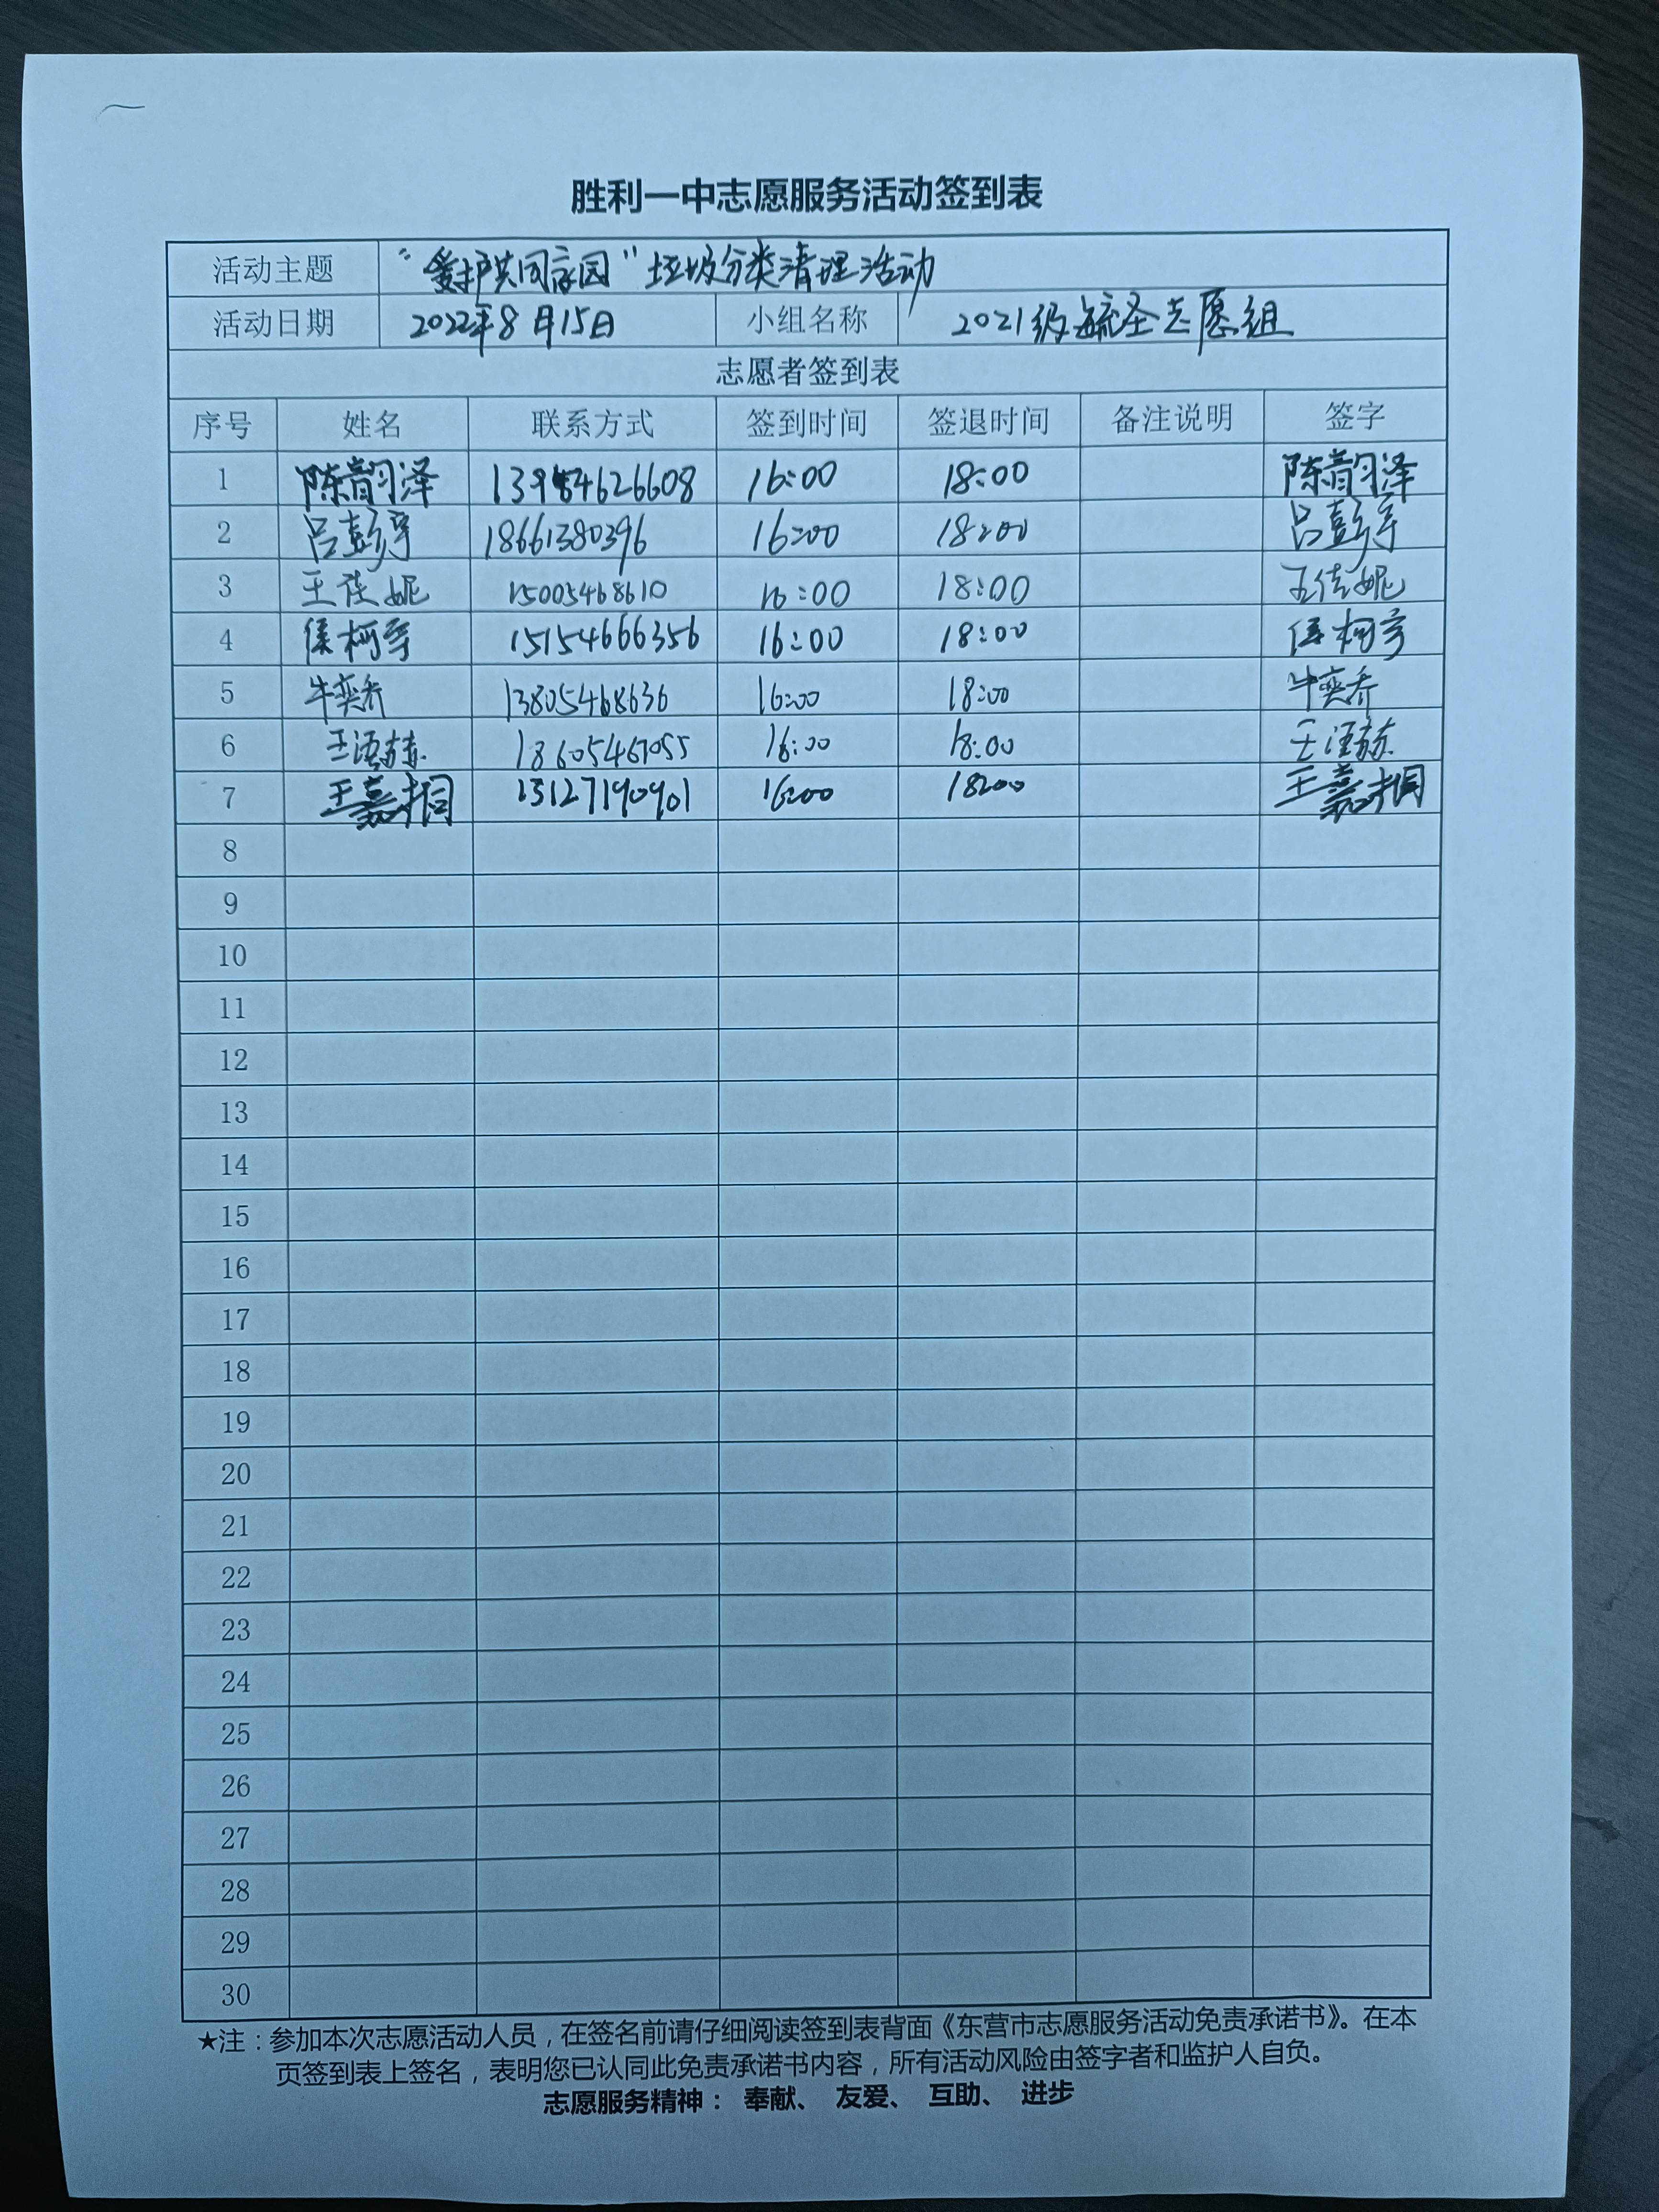 胜利一中志愿服务活动签到表
活动主题 “爱护共同家园”垃圾分类清理活动
活动日期 2022年8月15日 小组名称 2021级毓圣志愿组
志愿者签到表
序号 姓名 联系方式 签到时间 签退时间 备注说明 签字
1 陈韵泽 16:00 18:00 陈韵泽
2 吕彭宇 18661380396 16:00 18:00 吕彭宇
3 王佳妮 15005468610 16:00 18:00 王佳妮
4 侯柯宇 15154666356 16:00 18:00 侯柯宇
5 牛奕乔 13805468636 16:00 18:00 牛奕乔
6 18605467055 16:00 18:00
7 王嘉桐 16:00 18:00 王嘉桐
8
9
10
11
12
13
14
15
16
17
18
19
20
21
22
23
24
25
26
27
28
29
30
★注：参加本次志愿活动人员，在签名前请仔细阅读签到表背面《东营市志愿服务活动免责承诺书》。在本
页签到表上签名，表明您已认同此免责承诺书内容，所有活动风险由签字者和监护人自负。
志愿服务精神： 奉献、 友爱、 互助、 进步